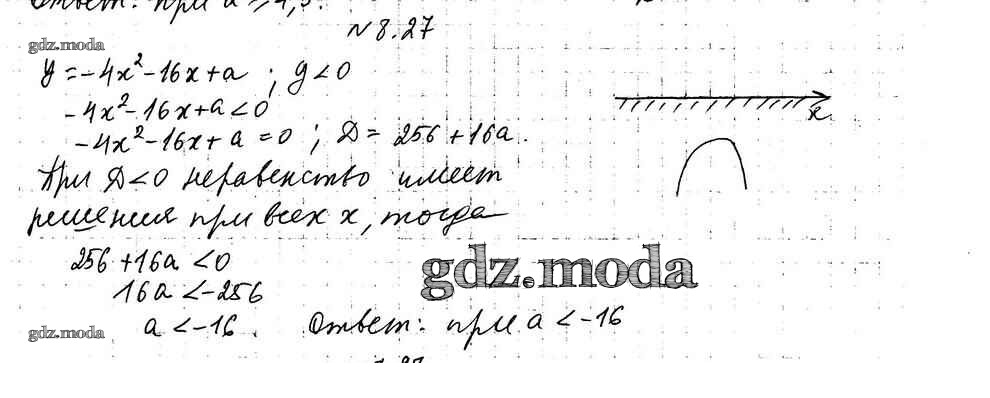 Ответ: при a ≥ 4,5.
№ 8.27
gdz.moda
y = -4x² - 16x + a ; y < 0
-4x² - 16x + a < 0
-4x² - 16x + a = 0 ; D = 256 + 16a.
x
При D < 0 неравенство имеет
решения при всех x, тогда
256 + 16a < 0
gdz.moda
16a < -256
a < -16. Ответ: при a < -16
gdz.moda